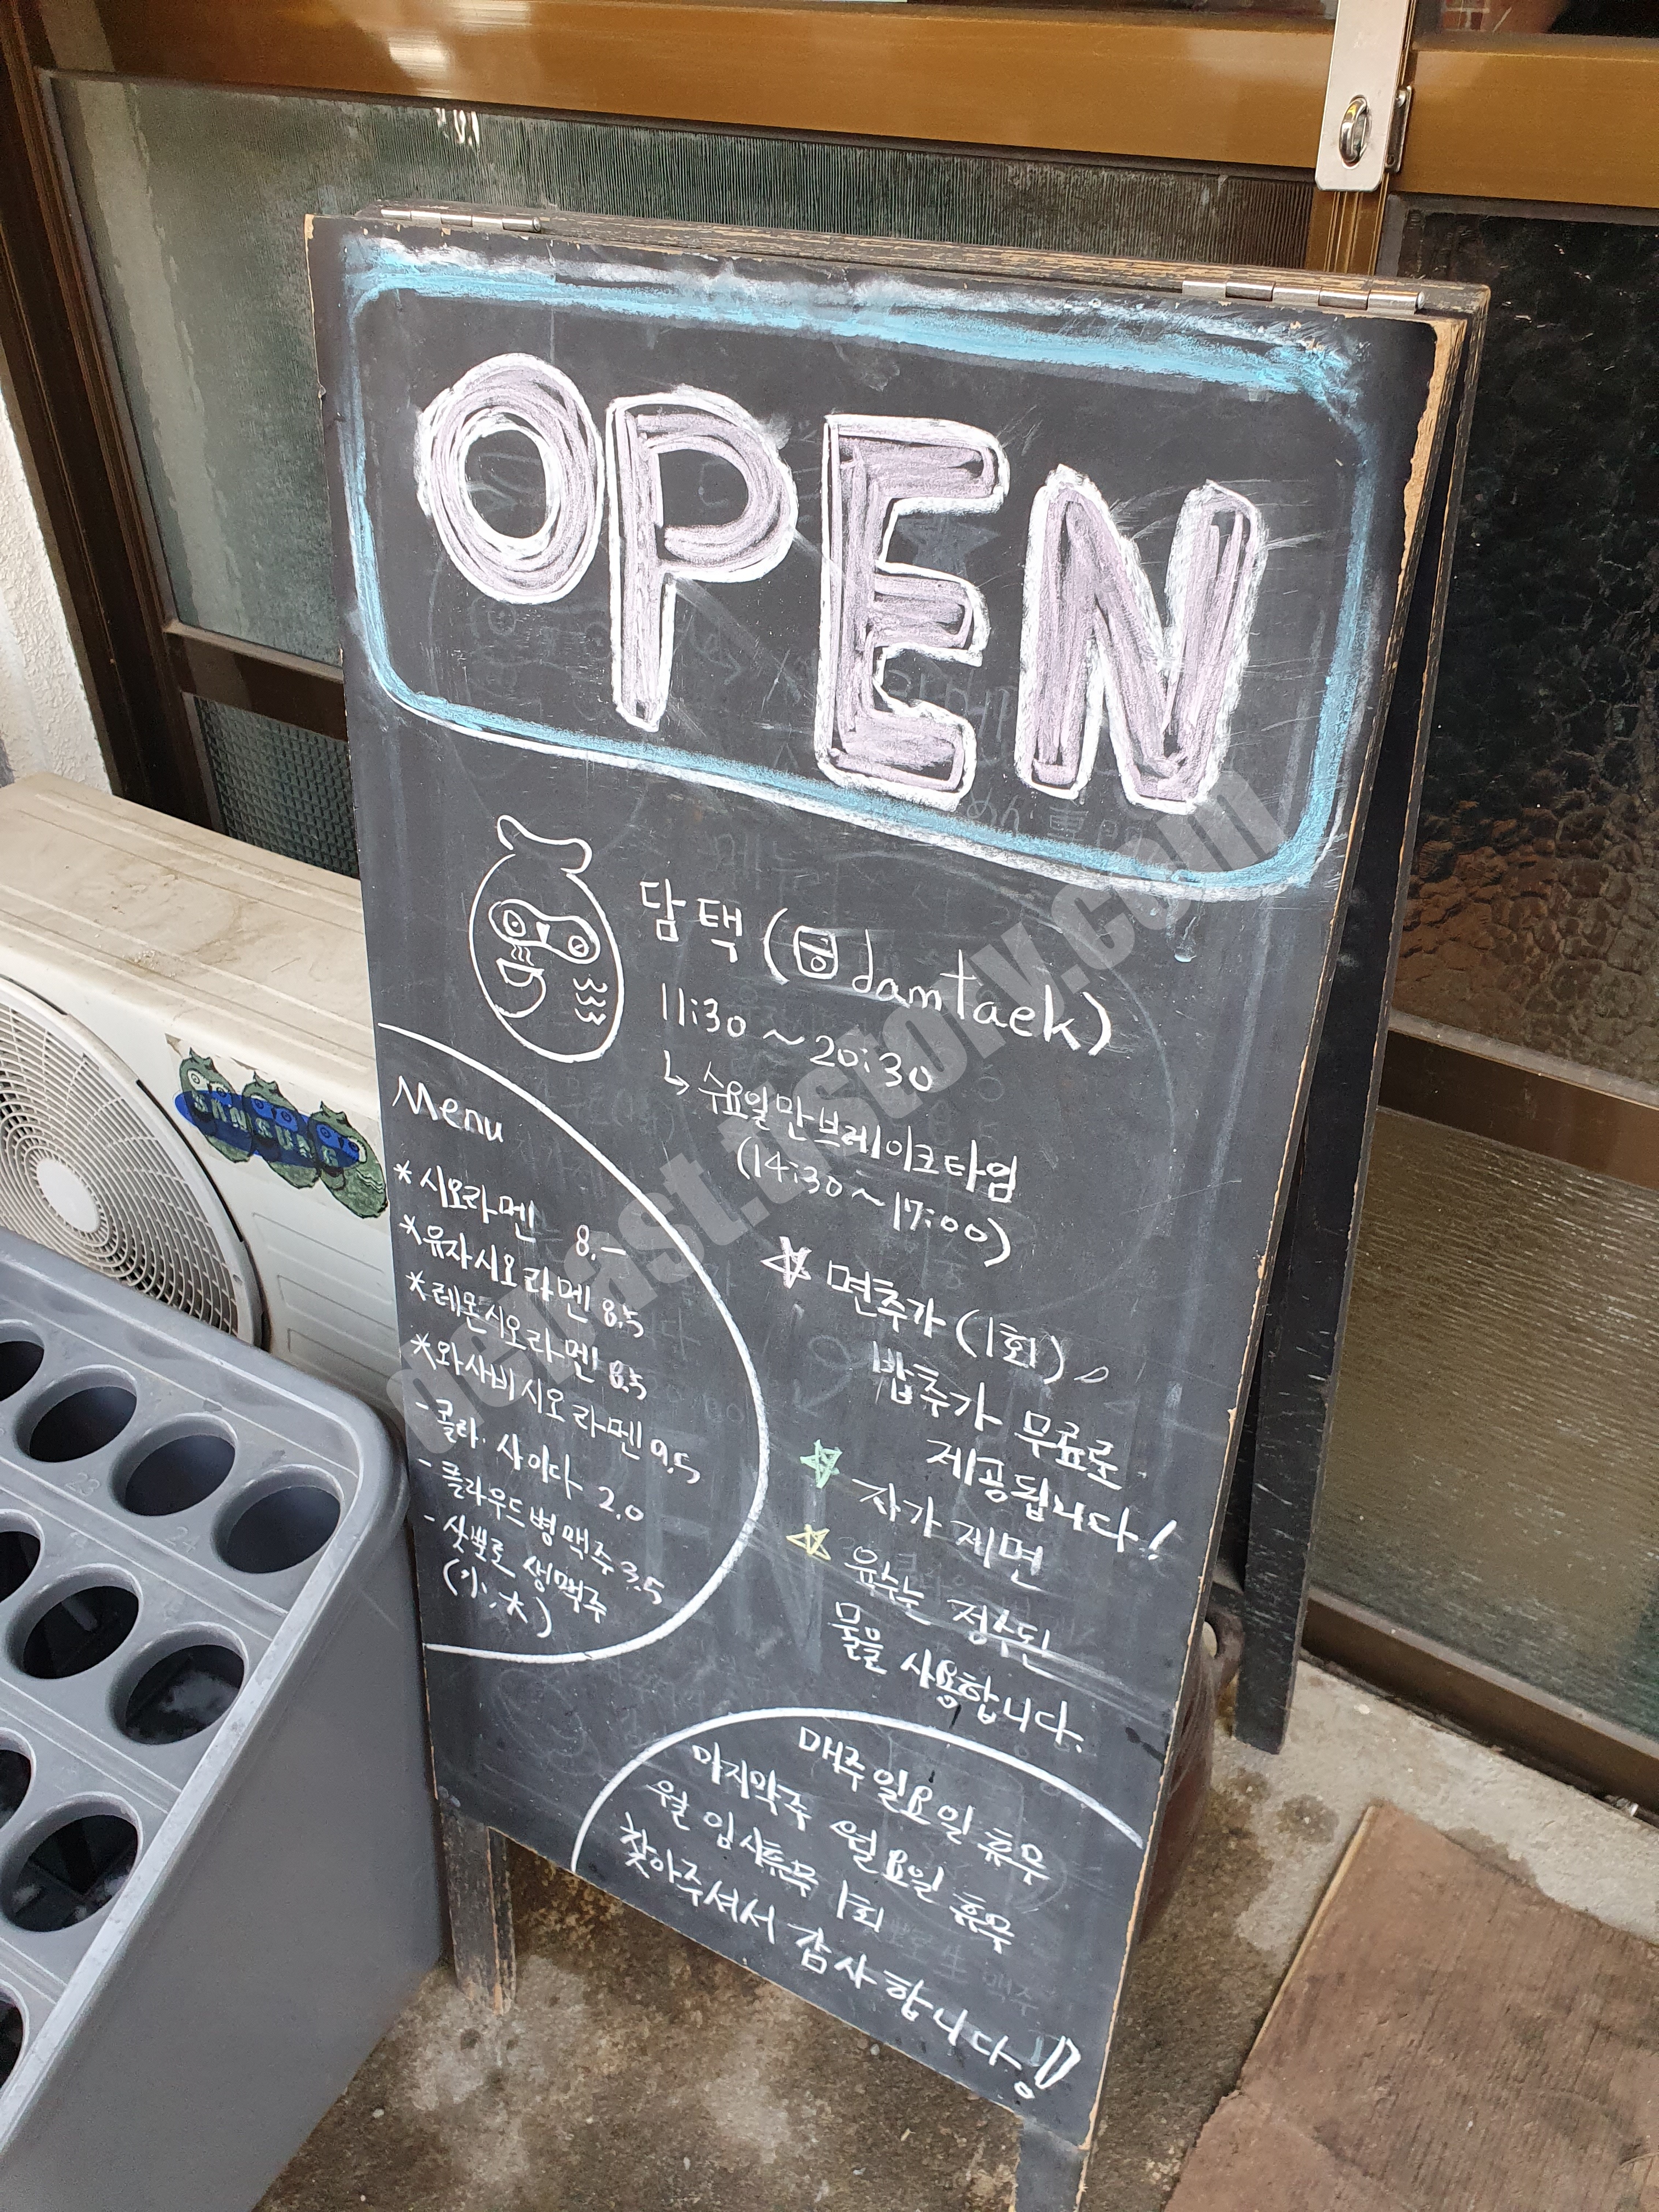 OPEN
담택 (damtaek)
11:30 ~ 20:30
↳ 수요일만브레이크타임
(14:30 ~ 17:00)
Menu
* 시오라멘 8.-
* 유자시오라멘 8.5
* 레몬시오라멘 8.5
* 와사비시오라멘 9.5
- 콜라. 사이다 2.0
- 클라우드병맥주 3.5
- 삿뽀로 생맥주
(小.大)
☆ 면추가 (1회),
밥추가 무료로
제공됩니다!
☆ 자가제면
☆ 육수는 정수된
물을 사용합니다.
매주 일요일 휴무
마지막주 월요일 휴무
월 임시휴무 1회
찾아주셔서 감사합니다!
SAMSUNG
23
24
delfast.tistory.com